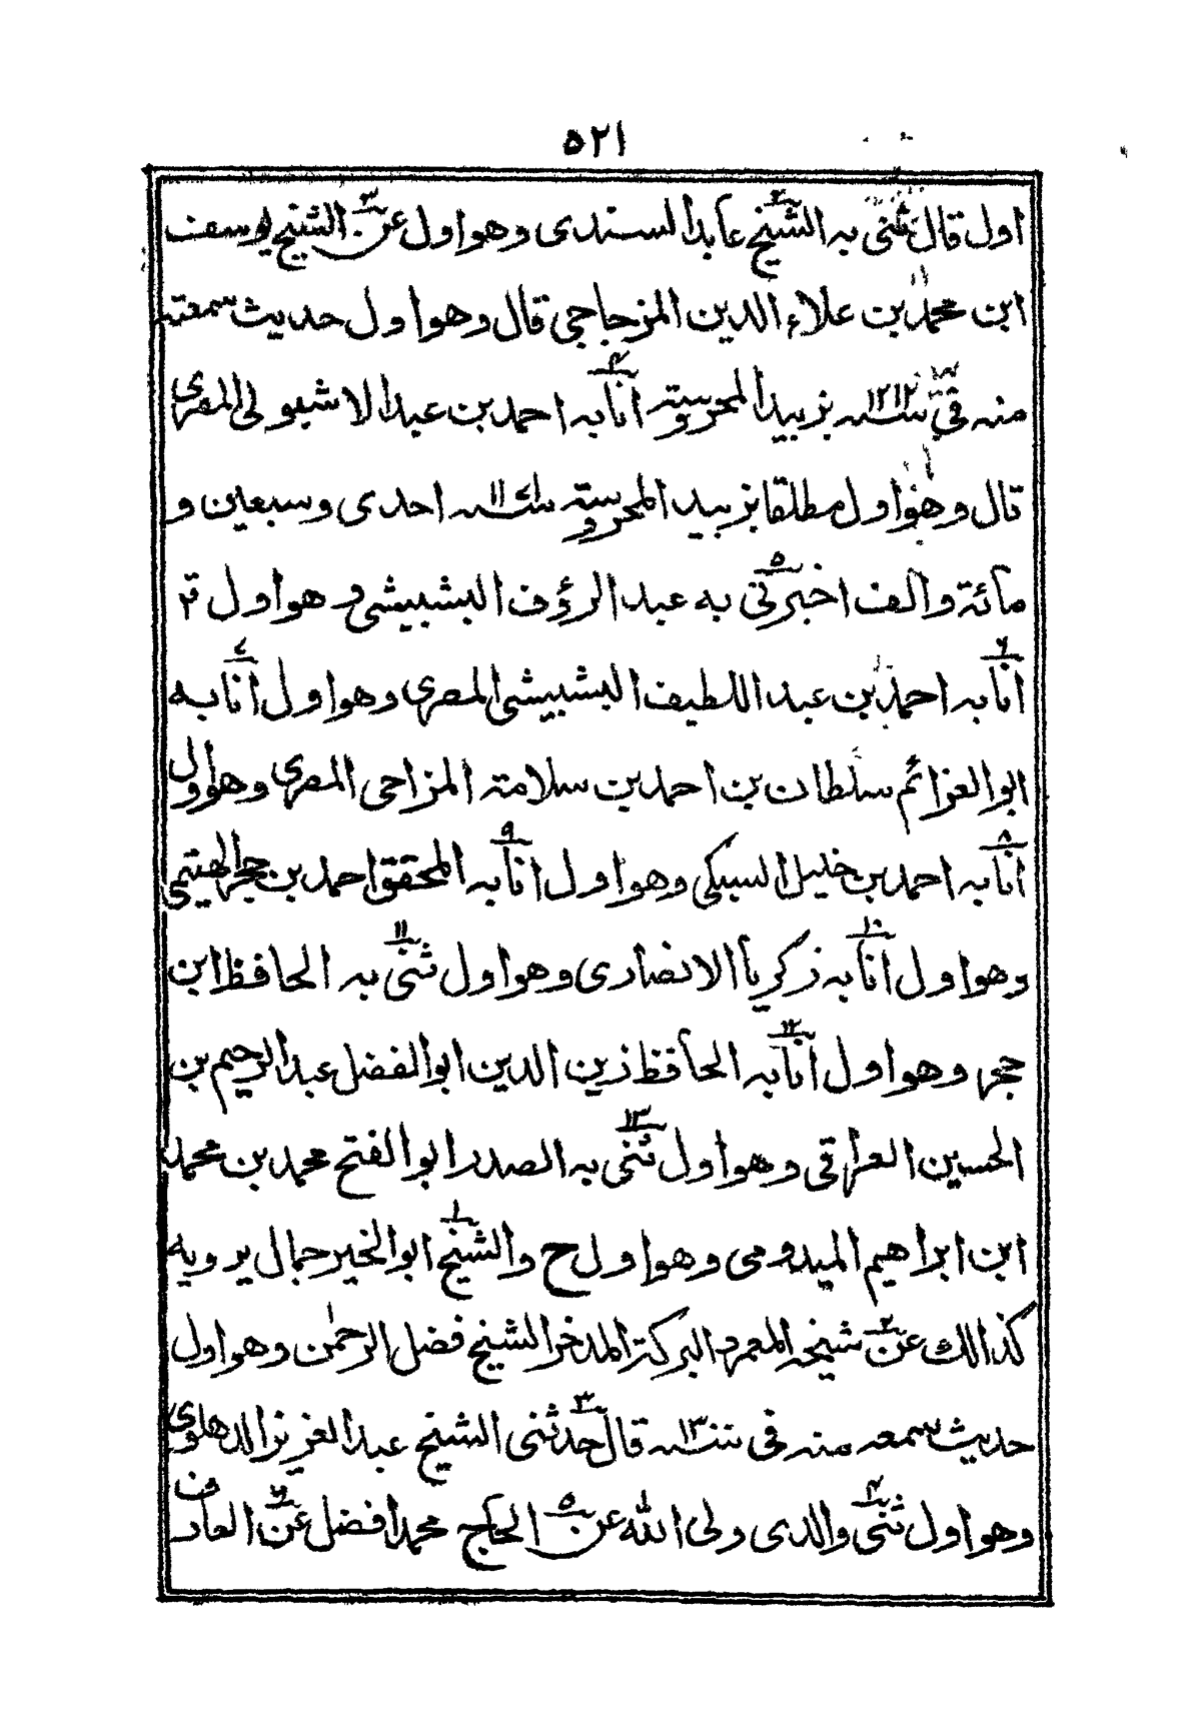 ٥٢١
اول قال ثنی به الشیخ عابد السندی وهو اول عن الشیخ یوسف
ابن محمد بن علاء الدین المزجاجی قال وهو اول حدیث سمعته
منه فی سنه ١٢١٢ بزبید المحروسته انا به احمد بن عبد الاشبولی المصری
قال وهو اول مطلقا بزبید المحروسته سنه احدی وسبعین و
مائة والف اخبرتی به عبد الرؤف البشبیشی وهو اول
انا به احمد بن عبد اللطیف البشبیشی المصری وهو اول انا به
ابو العزائم سلطان بن احمد بن سلامته المزاحی المصری وهو اول
انا به احمد بن خلیل السبکی وهو اول انا به المحقق احمد بن حجر الهیتمی
وهو اول انا به زکریا الانصاری وهو اول ثنی به الحافظ ابن
حجر وهو اول انا به الحافظ زین الدین ابو الفضل عبد الرحیم بن
الحسین العراقی وهو اول ثنی به الصدر ابو الفتح محمد بن محمد
ابن ابراهیم المیدومی وهو اول ح والشیخ ابو الخیر جمال یرویه
کذالک عن شیخه المعمر البرکة المدخر الشیخ فضل الرحمٰن وهو اول
حدیث سمعه منه فی قال حدثنی الشیخ عبد العزیز الدهلوی
وهو اول ثنی والدی ولی الله عن الحاج محمد افضل عن العارف